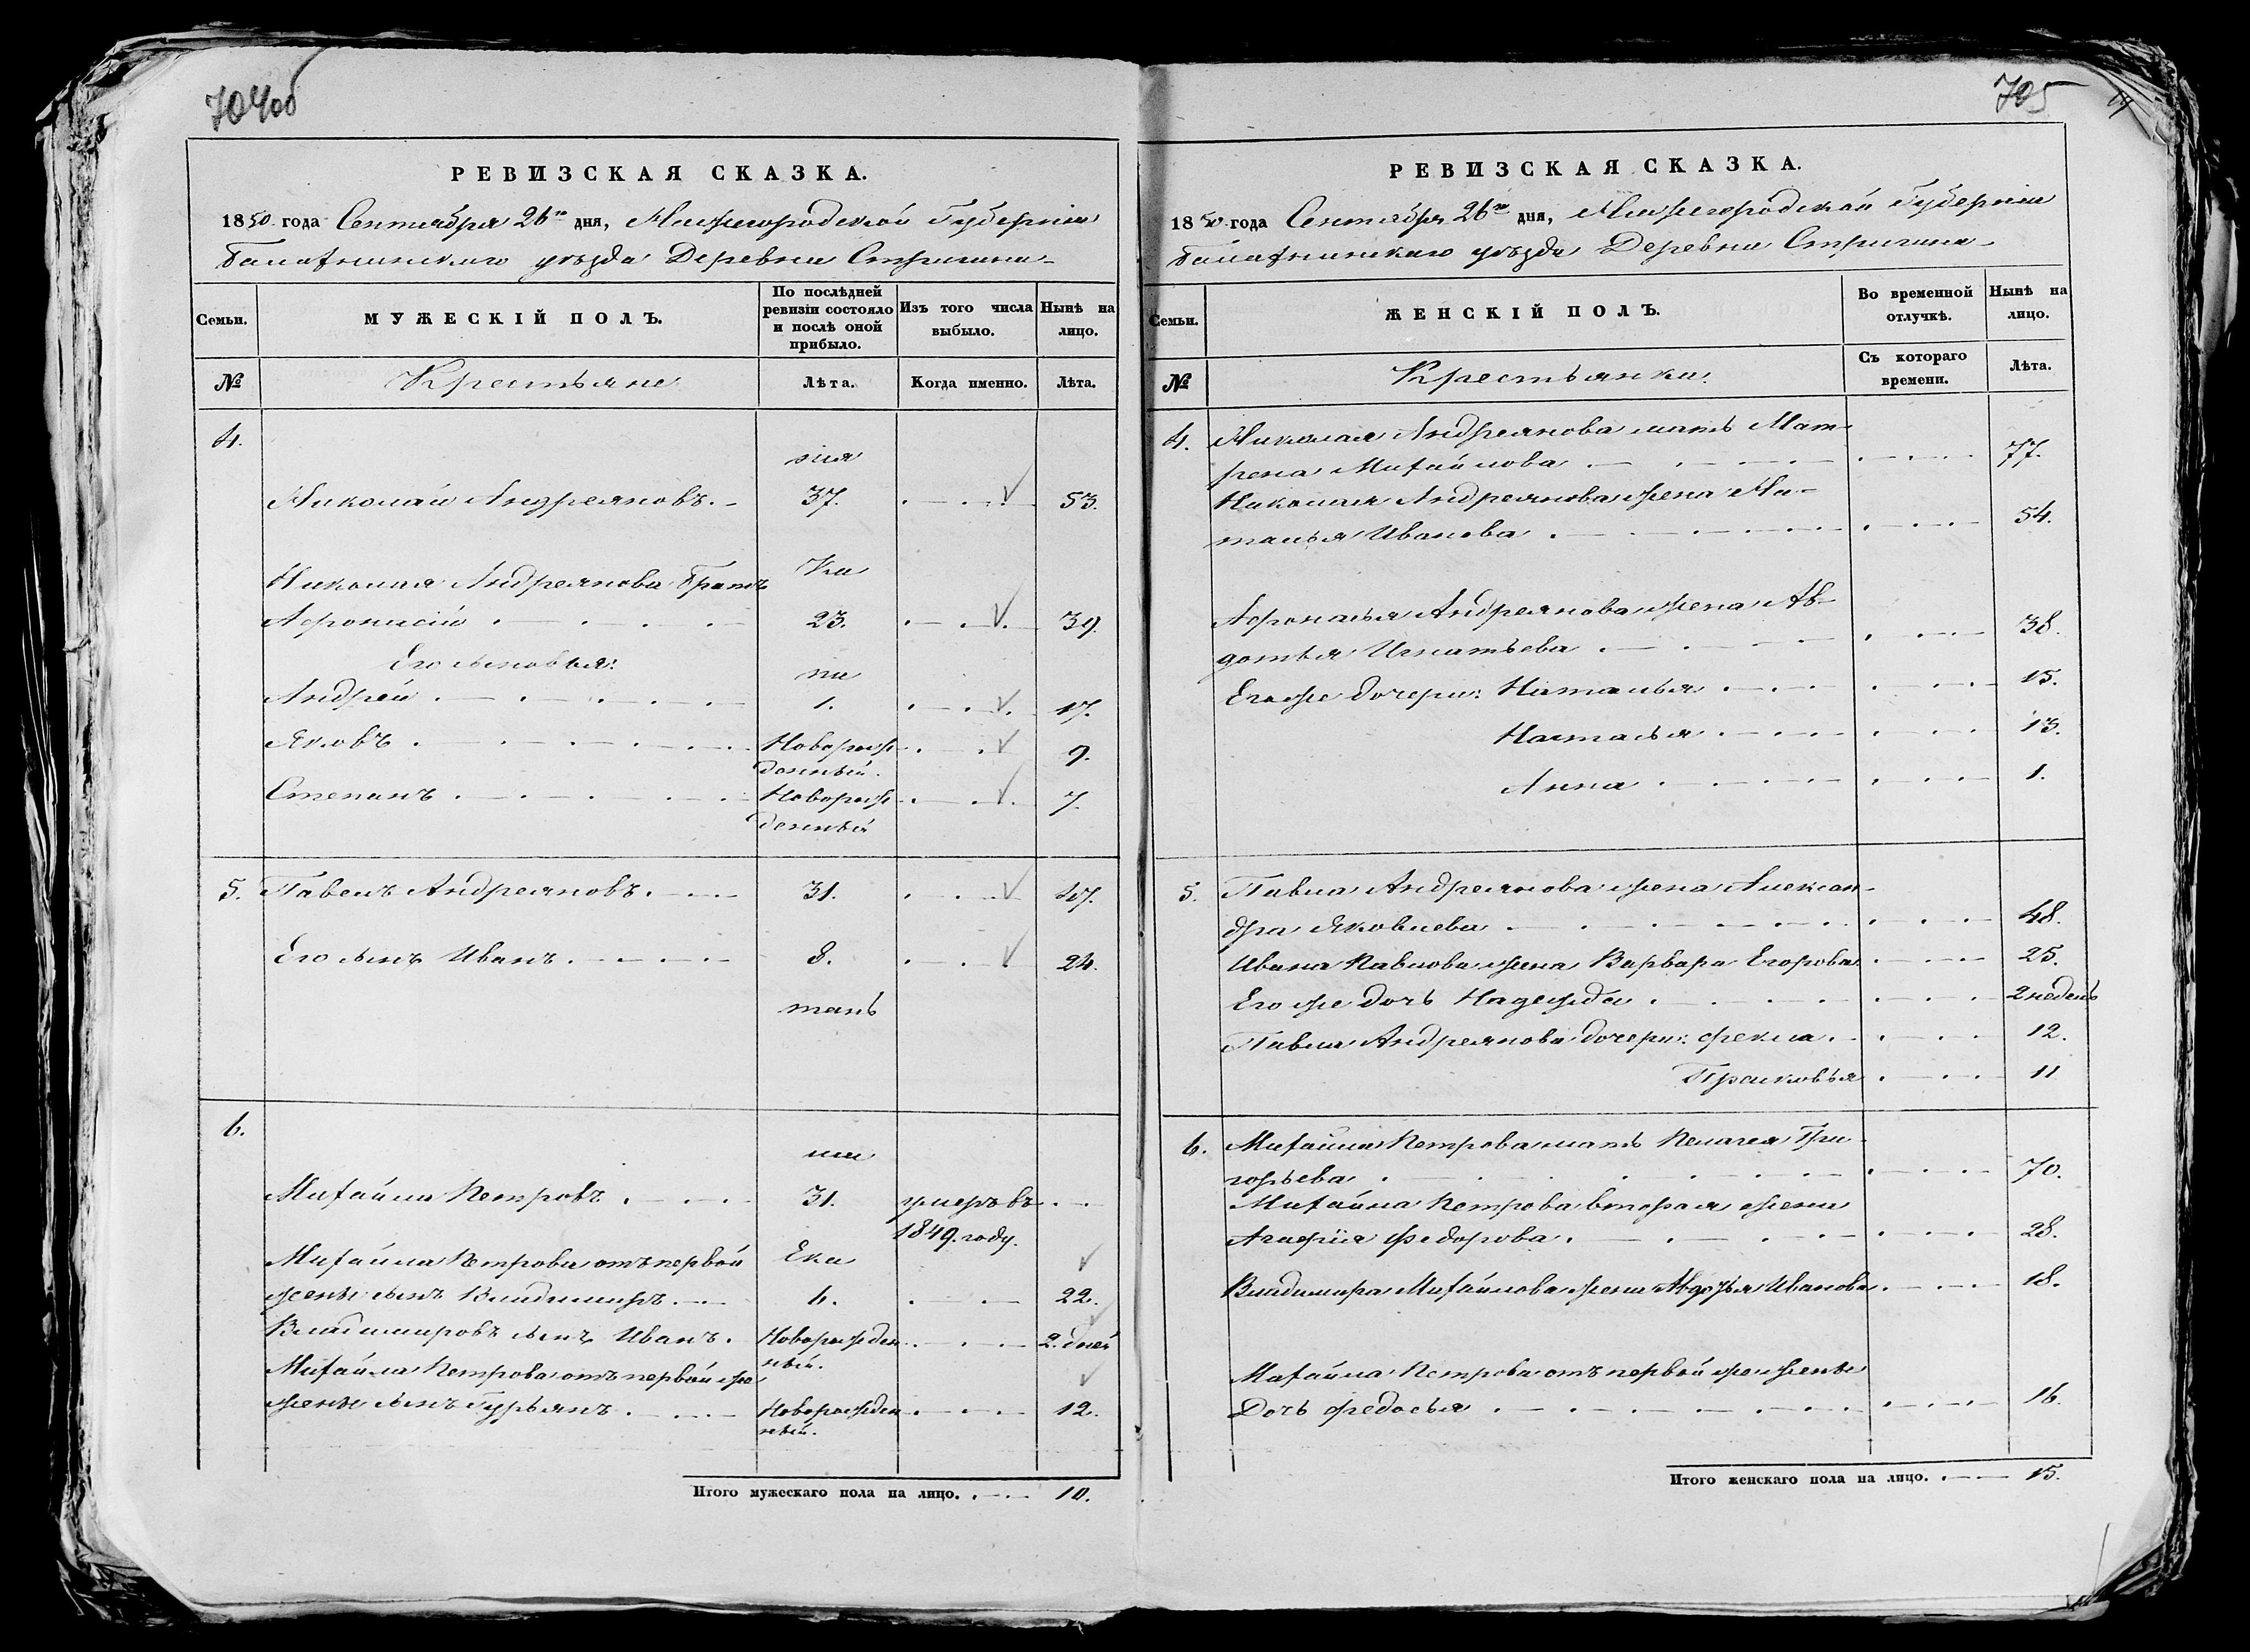 704об
РЕВИЗСКАЯ СКАЗКА.
1850 года Сентября 26го дня, Нижегородской Губернiи
Балахнинскаго уѣзда Деревни Стригина
Семьи.
МУЖЕСКІЙ ПОЛЪ.
По послѣдней ревизіи состояло и послѣ оной прибыло.
Изъ того числа выбыло.
Нынѣ на лицо.
№
Крестьяне
Лѣта.
Когда именно.
Лѣта.
4.
Николай Андреяновъ. 37. 53.
Николая Андреянова братъ
Афонасiй 23. 39.
Его сыновья:
Андрей 1. 17.
Яковъ Новорож- 9.
денный.
Степанъ Новорож- 7.
денный
5. Павелъ Андреяновъ. 31. 47.
Его сынъ Иванъ. 8. 24.
6.
Михайла Петровъ 31. умеръ въ
1849. году.
Михайла Петрова отъ первой
жены сынъ Владимиръ. 6. 22.
Владимировъ сынъ Иванъ. Новорожден 2. дней
ный.
Михайла Петрова отъ первой же
жены сынъ Гурьянъ Новорожден 12.
ный.
Итого мужескаго пола на лицо. 10.
705
РЕВИЗСКАЯ СКАЗКА.
1850 года Сентября 26го дня, Нижегородской Губернiи
Балахнинскаго уѣзда Деревни Стригина
Семьи.
ЖЕНСКІЙ ПОЛЪ.
Во временной отлучкѣ.
Нынѣ на лицо.
№
Крестьянки.
Съ котораго времени.
Лѣта.
4. Николая Андреянова мать Мат-
рена Михайлова 77.
Николая Андреянова жена На-
талья Иванова 54.
Афонасья Андреянова жена Ав-
дотья Игнатьева 38.
Его же дочери: Наталья 15.
Настасья 13.
Анна 1.
5. Павла Андреянова жена Алексан-
дра Яковлева 48.
Ивана Павлова жена Варвара Егорова 25.
Его же дочь Надежда 2 недель
Павла Андреянова дочери: Фекла 12.
Прасковья 11
6. Михайла Петрова мать Пелагея Гри-
горьева 70.
Михайла Петрова вторая жена
Федорова 28.
Владимира Михайлова жена Авдотья Иванова 18.
Михайла Петрова отъ первой же жены
Дочь Федосья 16.
Итого женскаго пола на лицо. 15.